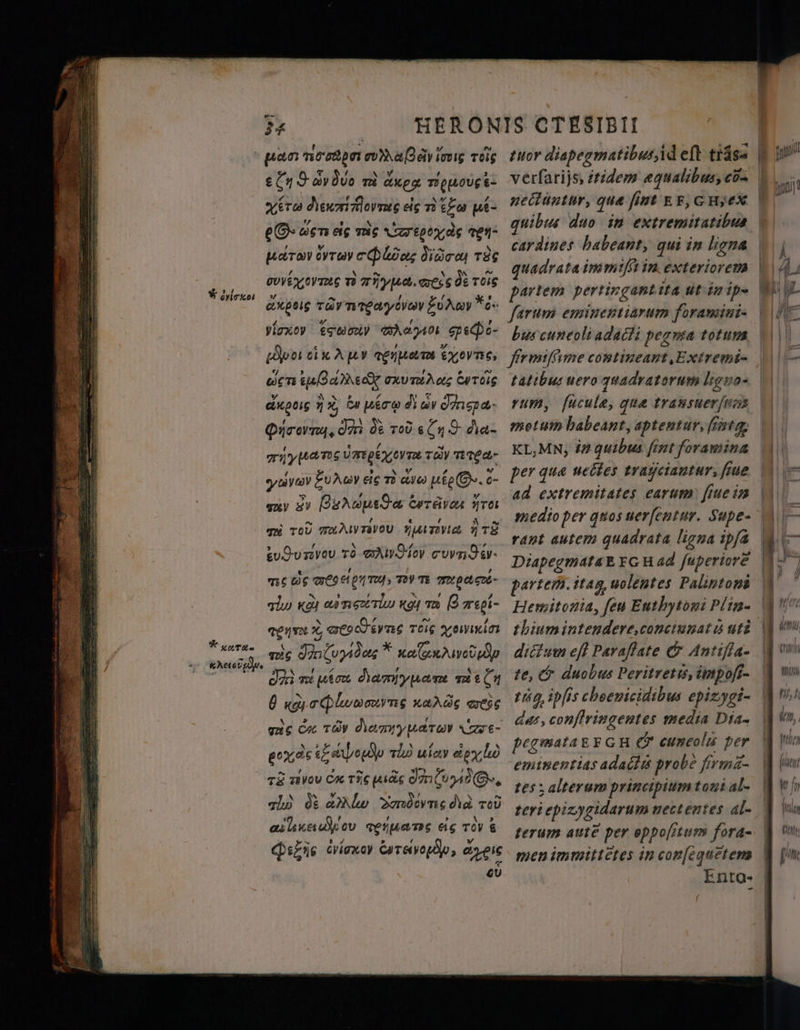 34 HERONIS CTESIBII
μασι τέσσαρσι συλλαβεῖν ἴσοις τοῖς
εζηθ ὧν δύο τὰ ἄκρα τόρμους ἐ-
χέτω διεκπίπτοντας εἰς τὸ ἔξω μέ-
ρος ὥστε εἰς τὰς ὑπεροχὰς τρη-
μάτων ὄντων σφλῶας διῶσαι τὰς
συνέχοντας τὸ πῆγμα. πρὸς δὲ τοῖς
* ὀνίσκοι
ἄκροις τῶν τετραγόνων ξύλων * ὀ-
νίσκον ἔστωσαν πλάγιοι ἐρεφό-
μλροι οἱ κλ μν τρήματα ἔχοντες,
ὥστε ἐμβάλλεσθ σκυτάλας ἐν τοῖς
ἄκροις ἢ καὶ ἐν μέσῳ δι' ὧν ἐπιστρα-
φήσονται, ἐπὶ δὲ τοῦ εζηθ δια-
πήγματος ὑπερέχοντα τῶν τετρα-
γώνων ξύλων εἰς τὸ ἄνω μέρος. ὅ-
ταν οὖν βουλώμεθα ἐντεῖναι ἤτοι
τὰ τοῦ παλιντόνου ἡμιτόνια ἢ τοῦ
ἐυθυτόνου τὸ πλινθίον συντεθέν-
τες ὡς προείρηται, τόν τε παραστά-
τίω καὶ ἀντιστάτίω καὶ τὰ β περί-
τρητα καὶ προσθέντες τοῖς χοινικίσι
* κατα-
κλειουμλρ
τὰς ἐπιζυγίδας * καθακλινοῦμλρ
ἐπὶ τὰ μέσα διαπήγματα τὰ εζη
θ καὶ σφλωώσαντες καλῶς πρὸς
τὰς ἐκ τῶν διαπηγμάτων ὑπε-
ροχὰς ἐξάψομλρ τίω μίαν ἀρχίω
τοῦ τόνου ἐκ τῆς μιᾶς ἐπιζυγίδος,
τίω δὲ ἄλλίω διαδόντες διὰ τοῦ
ἀντικειμλρου τρήματος εἰς τὸν ἐ
φεξῆς ὀνίσκον ἐντείνομλρ, ἄχρις
οὗ
tuor diapegmatibus, id est trãs-
versarijs, itidem equalibus, cõ-
nectuntur, quæ sint EF, GH, ex
quibus duo in extremitatibus
cardines habeant, qui in ligna
quadrata immissi in exteriorem
partem pertingant ita ut in ip-
sarum eminentiarum foramini-
bus cuneoli adacti pegma totum
firmissime contineant, Extremi-
tatibus uero quadratorum ligno-
rum, suculæ, quæ transuersum
motum habeant, aptentur, sintq;
KL, MN, in quibus sint foramina
per quæ uectes trayciantur, siue
ad extremitates earum siue in
medio per quos uersentur. Supe-
rant autem quadrata ligna ipsa
Diapegmata EFGH ad superiorẽ
partem. itaq, uolentes Palintoni
Hemitonia, seu Euthytoni Plin-
thium intendere, coniunatis uti
dictum est Parastate & Antista-
te, & duobus Peritretis, imposi-
tisq, ipsis choenicidibus epizygi-
das, constringentes media Dia-
pegmata EFGH & cuneolis per
eminentias adactis probè firmã-
tes; alterum principium toni al-
teri epizygidarum nectentes al-
terum autẽ per oppositum fora-
men immittẽtes in consequẽtem
Ento-